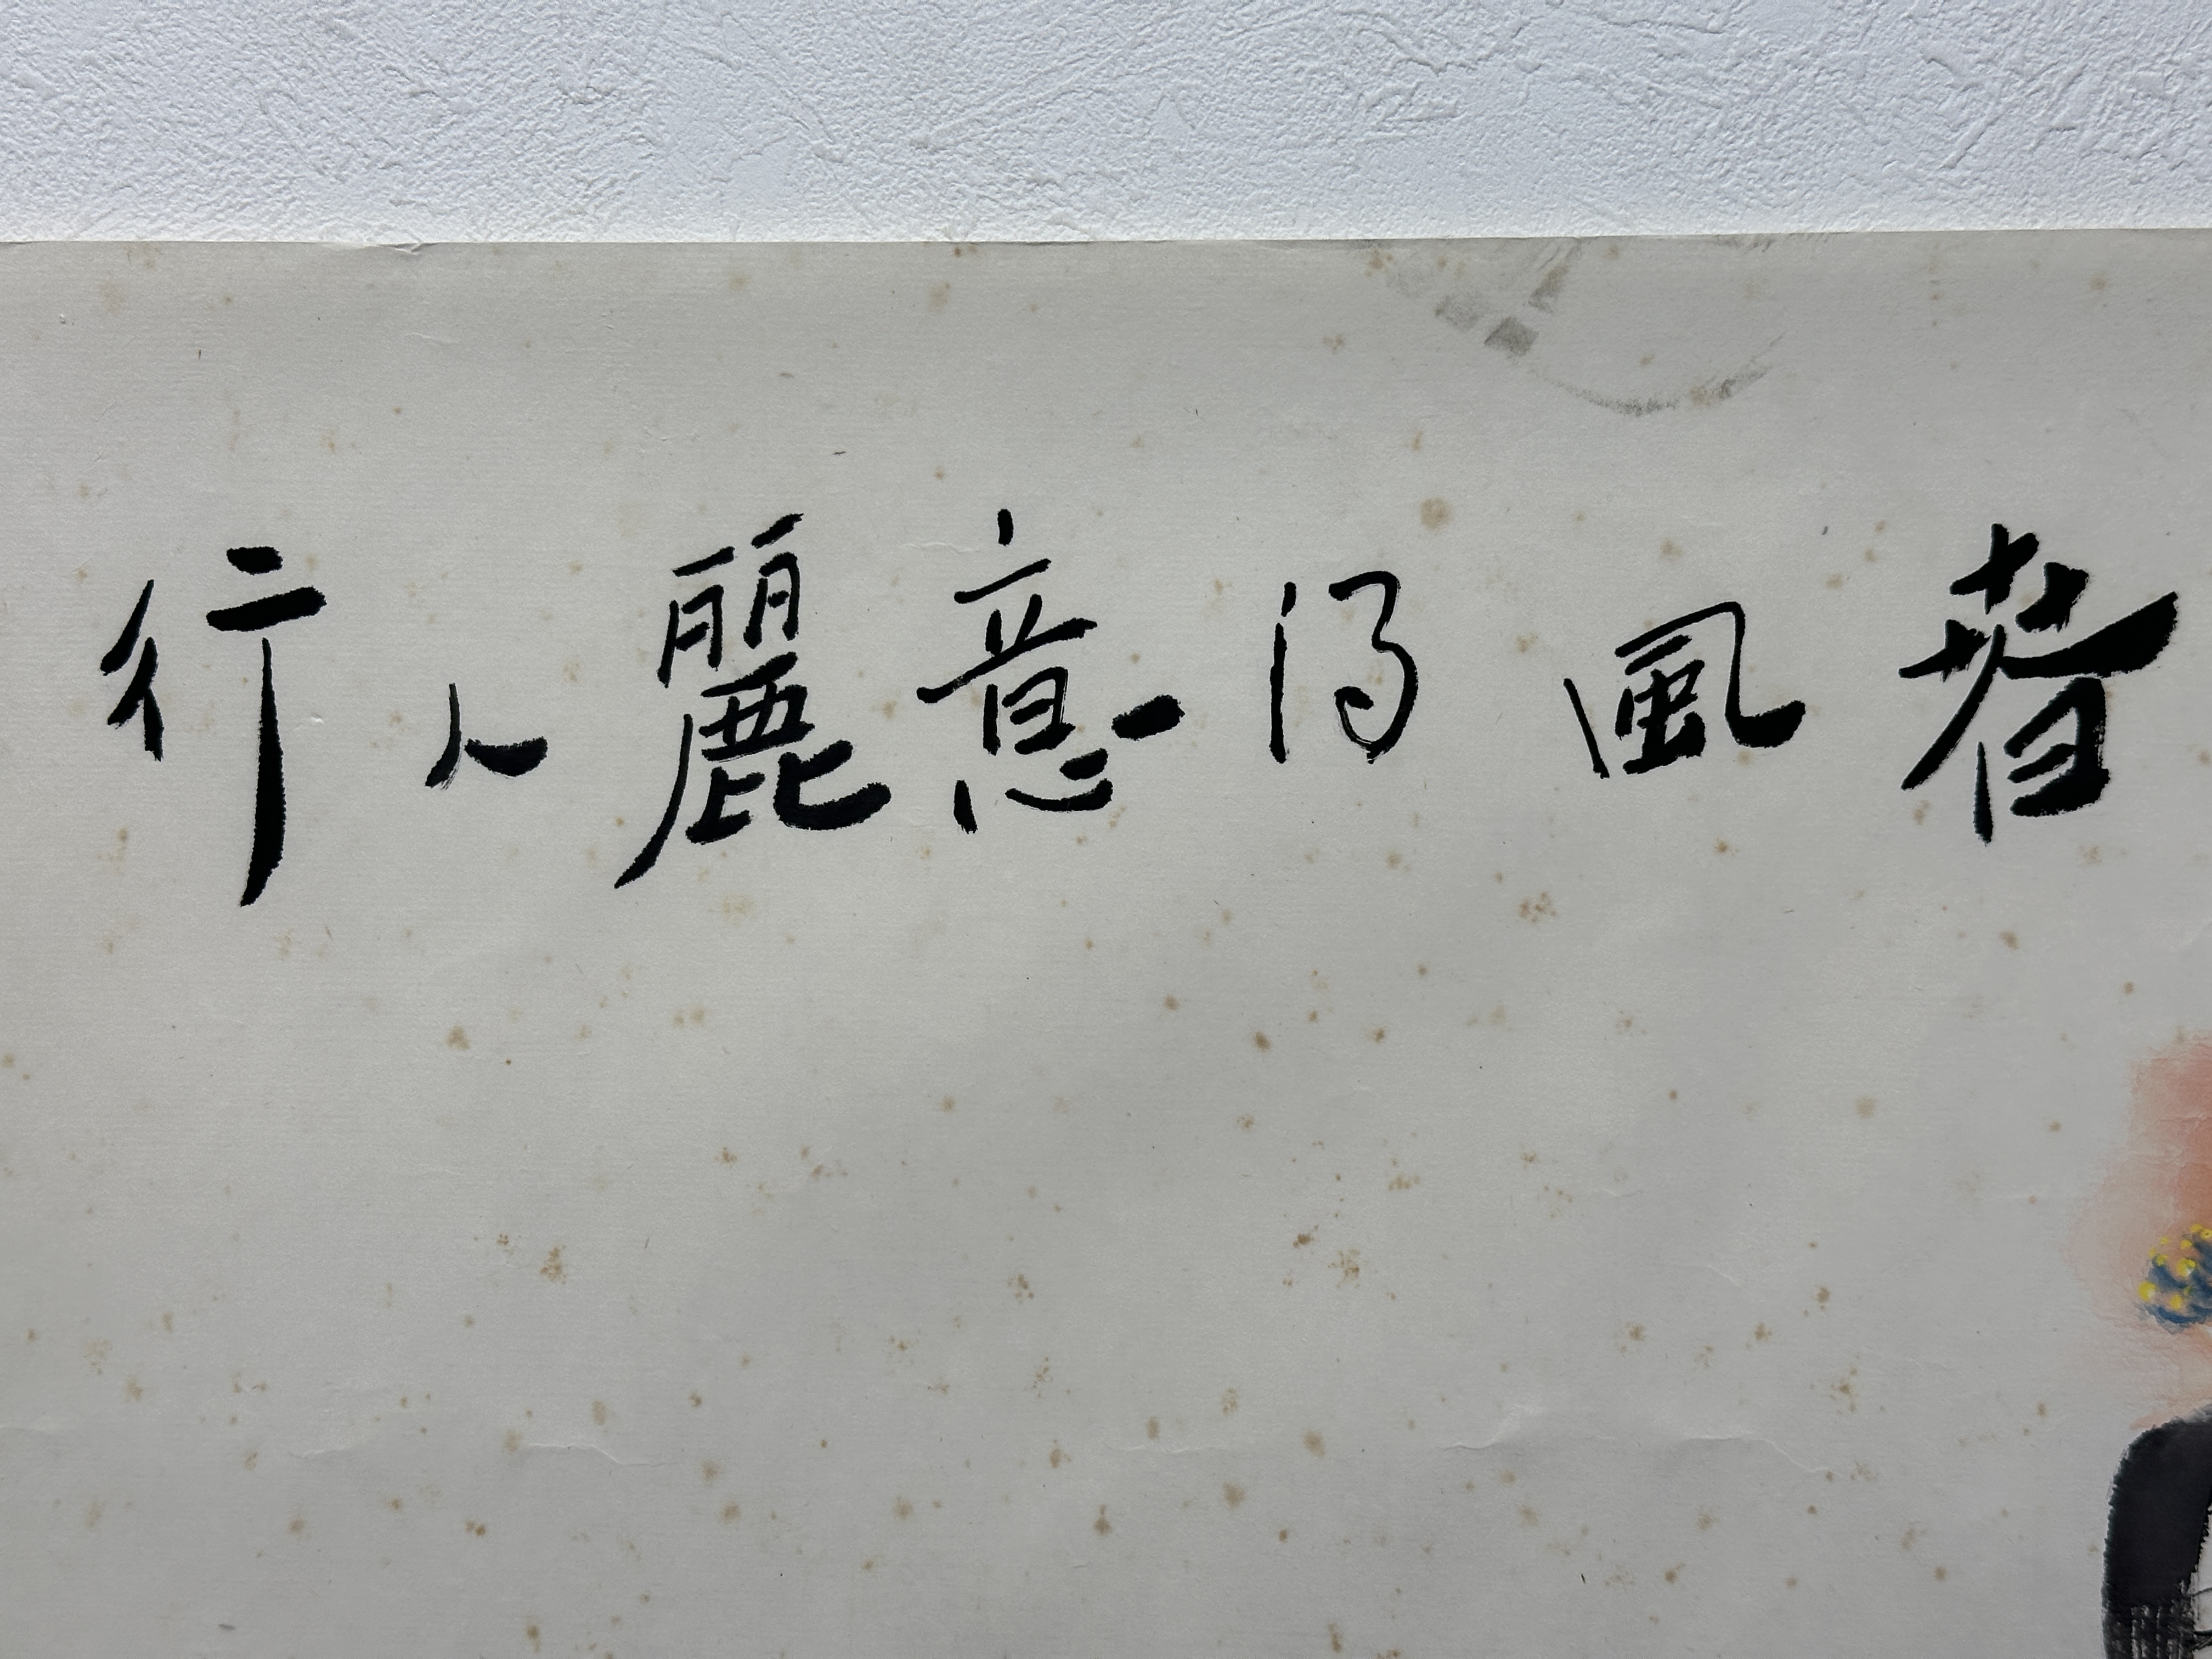 春風得意麗人行